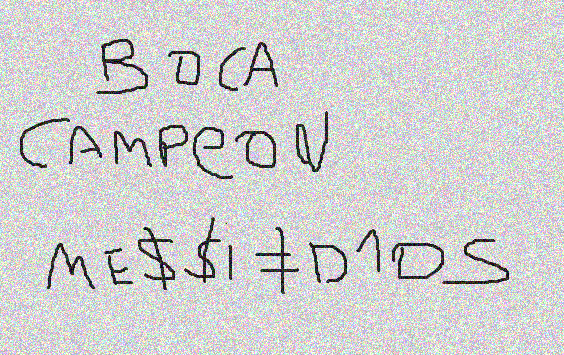 BOCA
CAMPEON
ME$$I ≠ D1OS